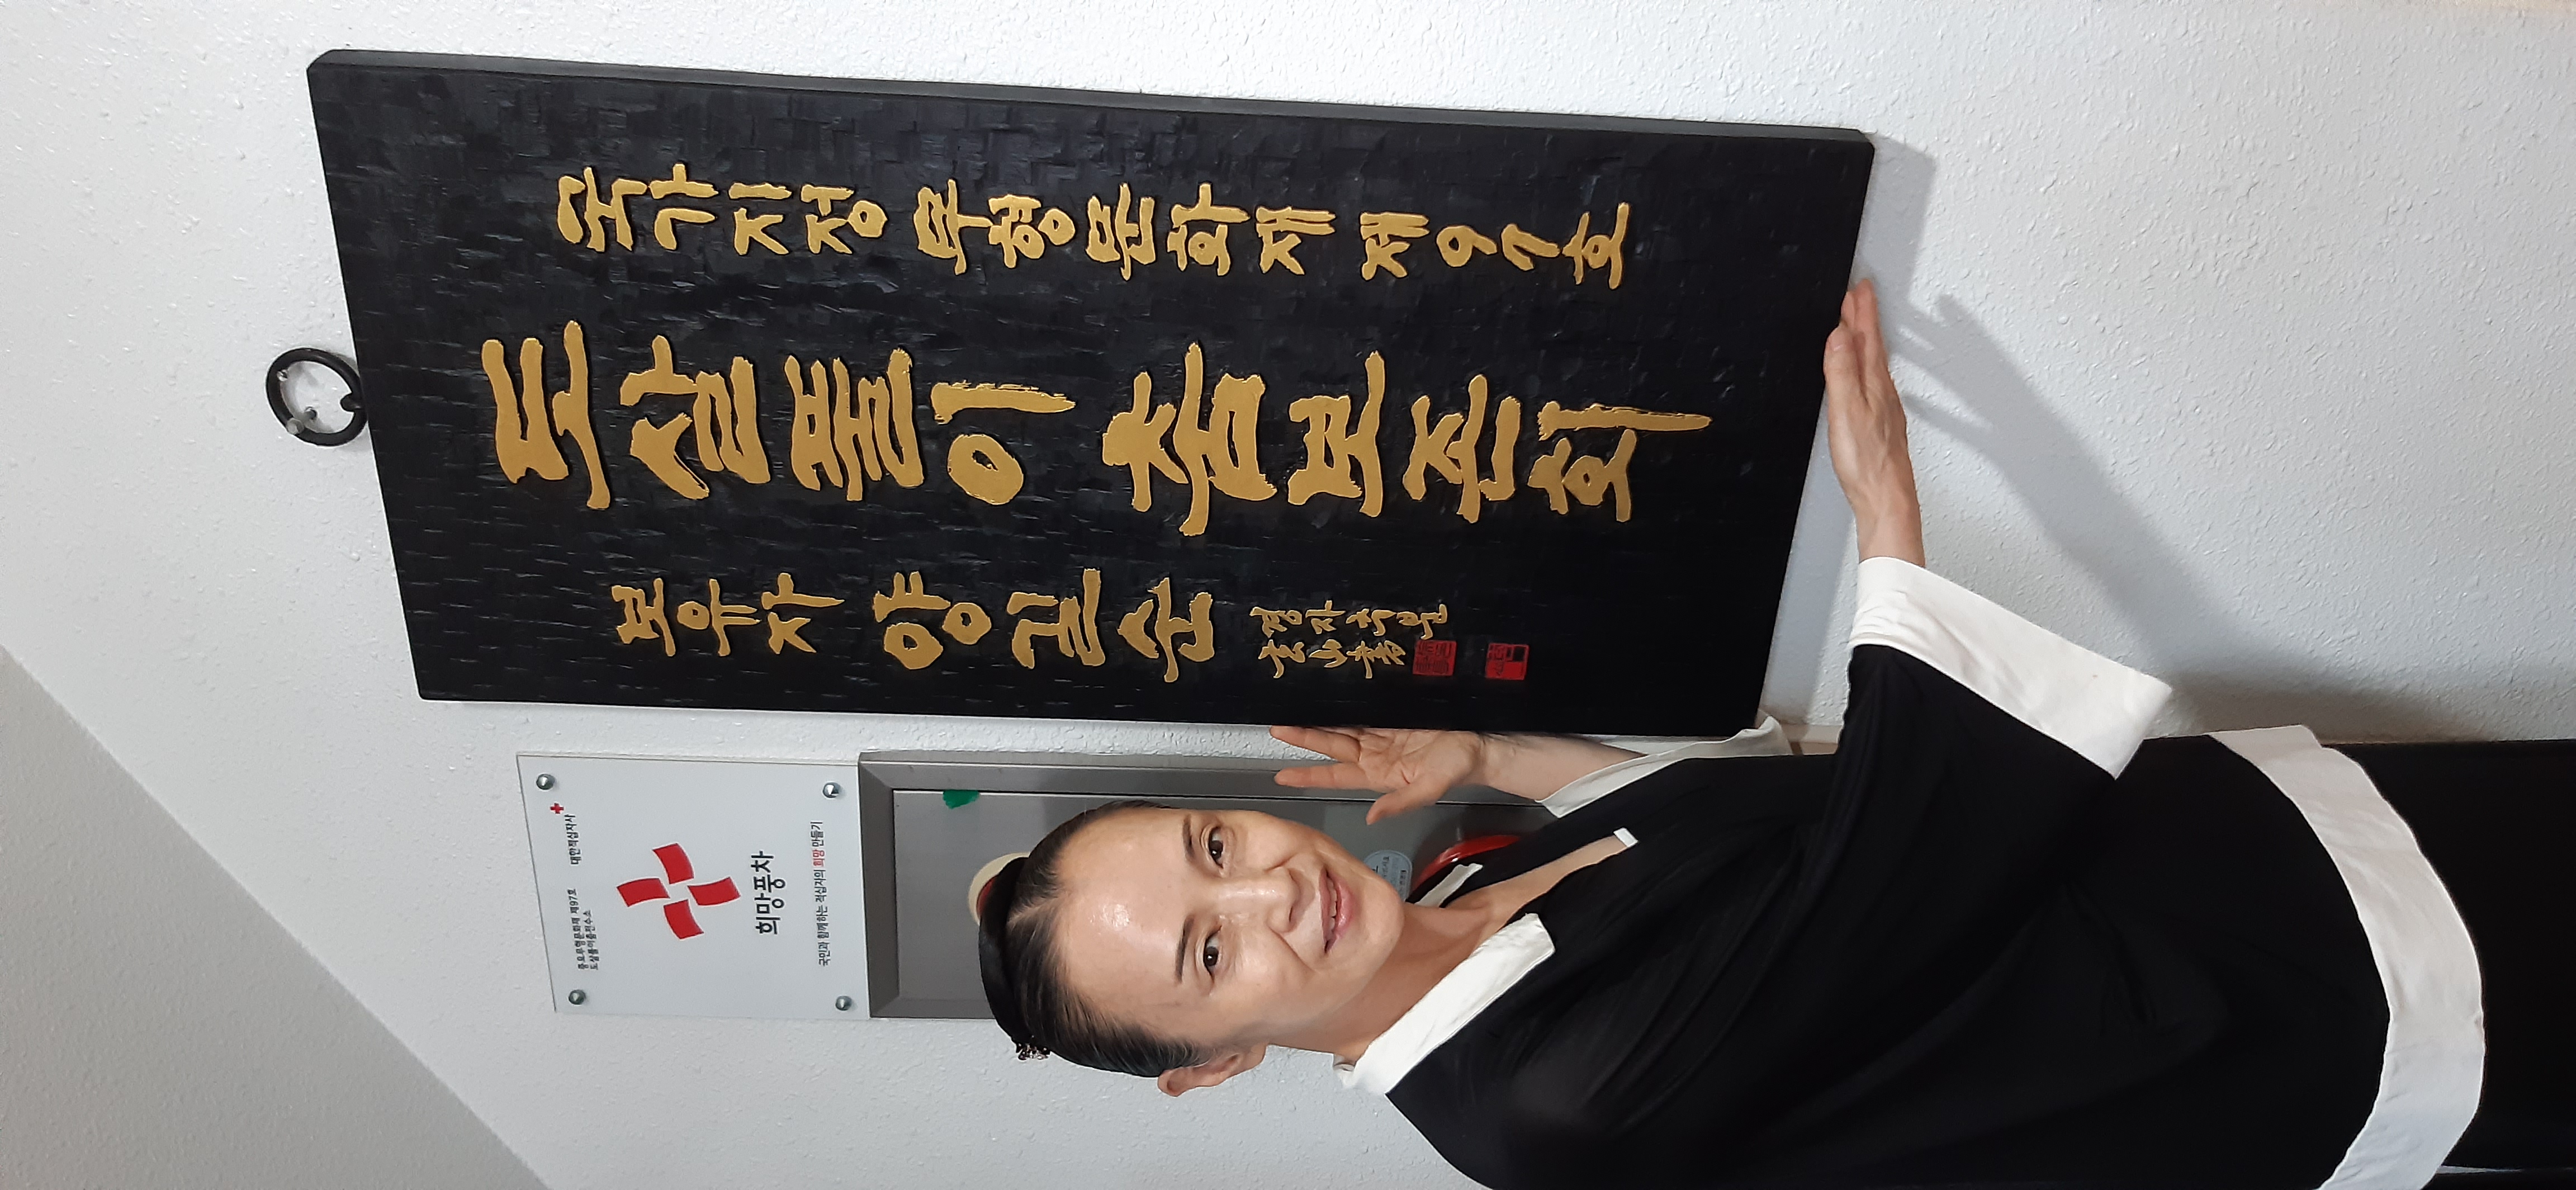 국가지정 무형문화재 제97호
도살풀이춤보존회
보유자 양길순
중요무형문화재 제97호
도살풀이춤전수소
대한적십자사
희망풍차
국민과 함께하는 적십자의 희망 만들기